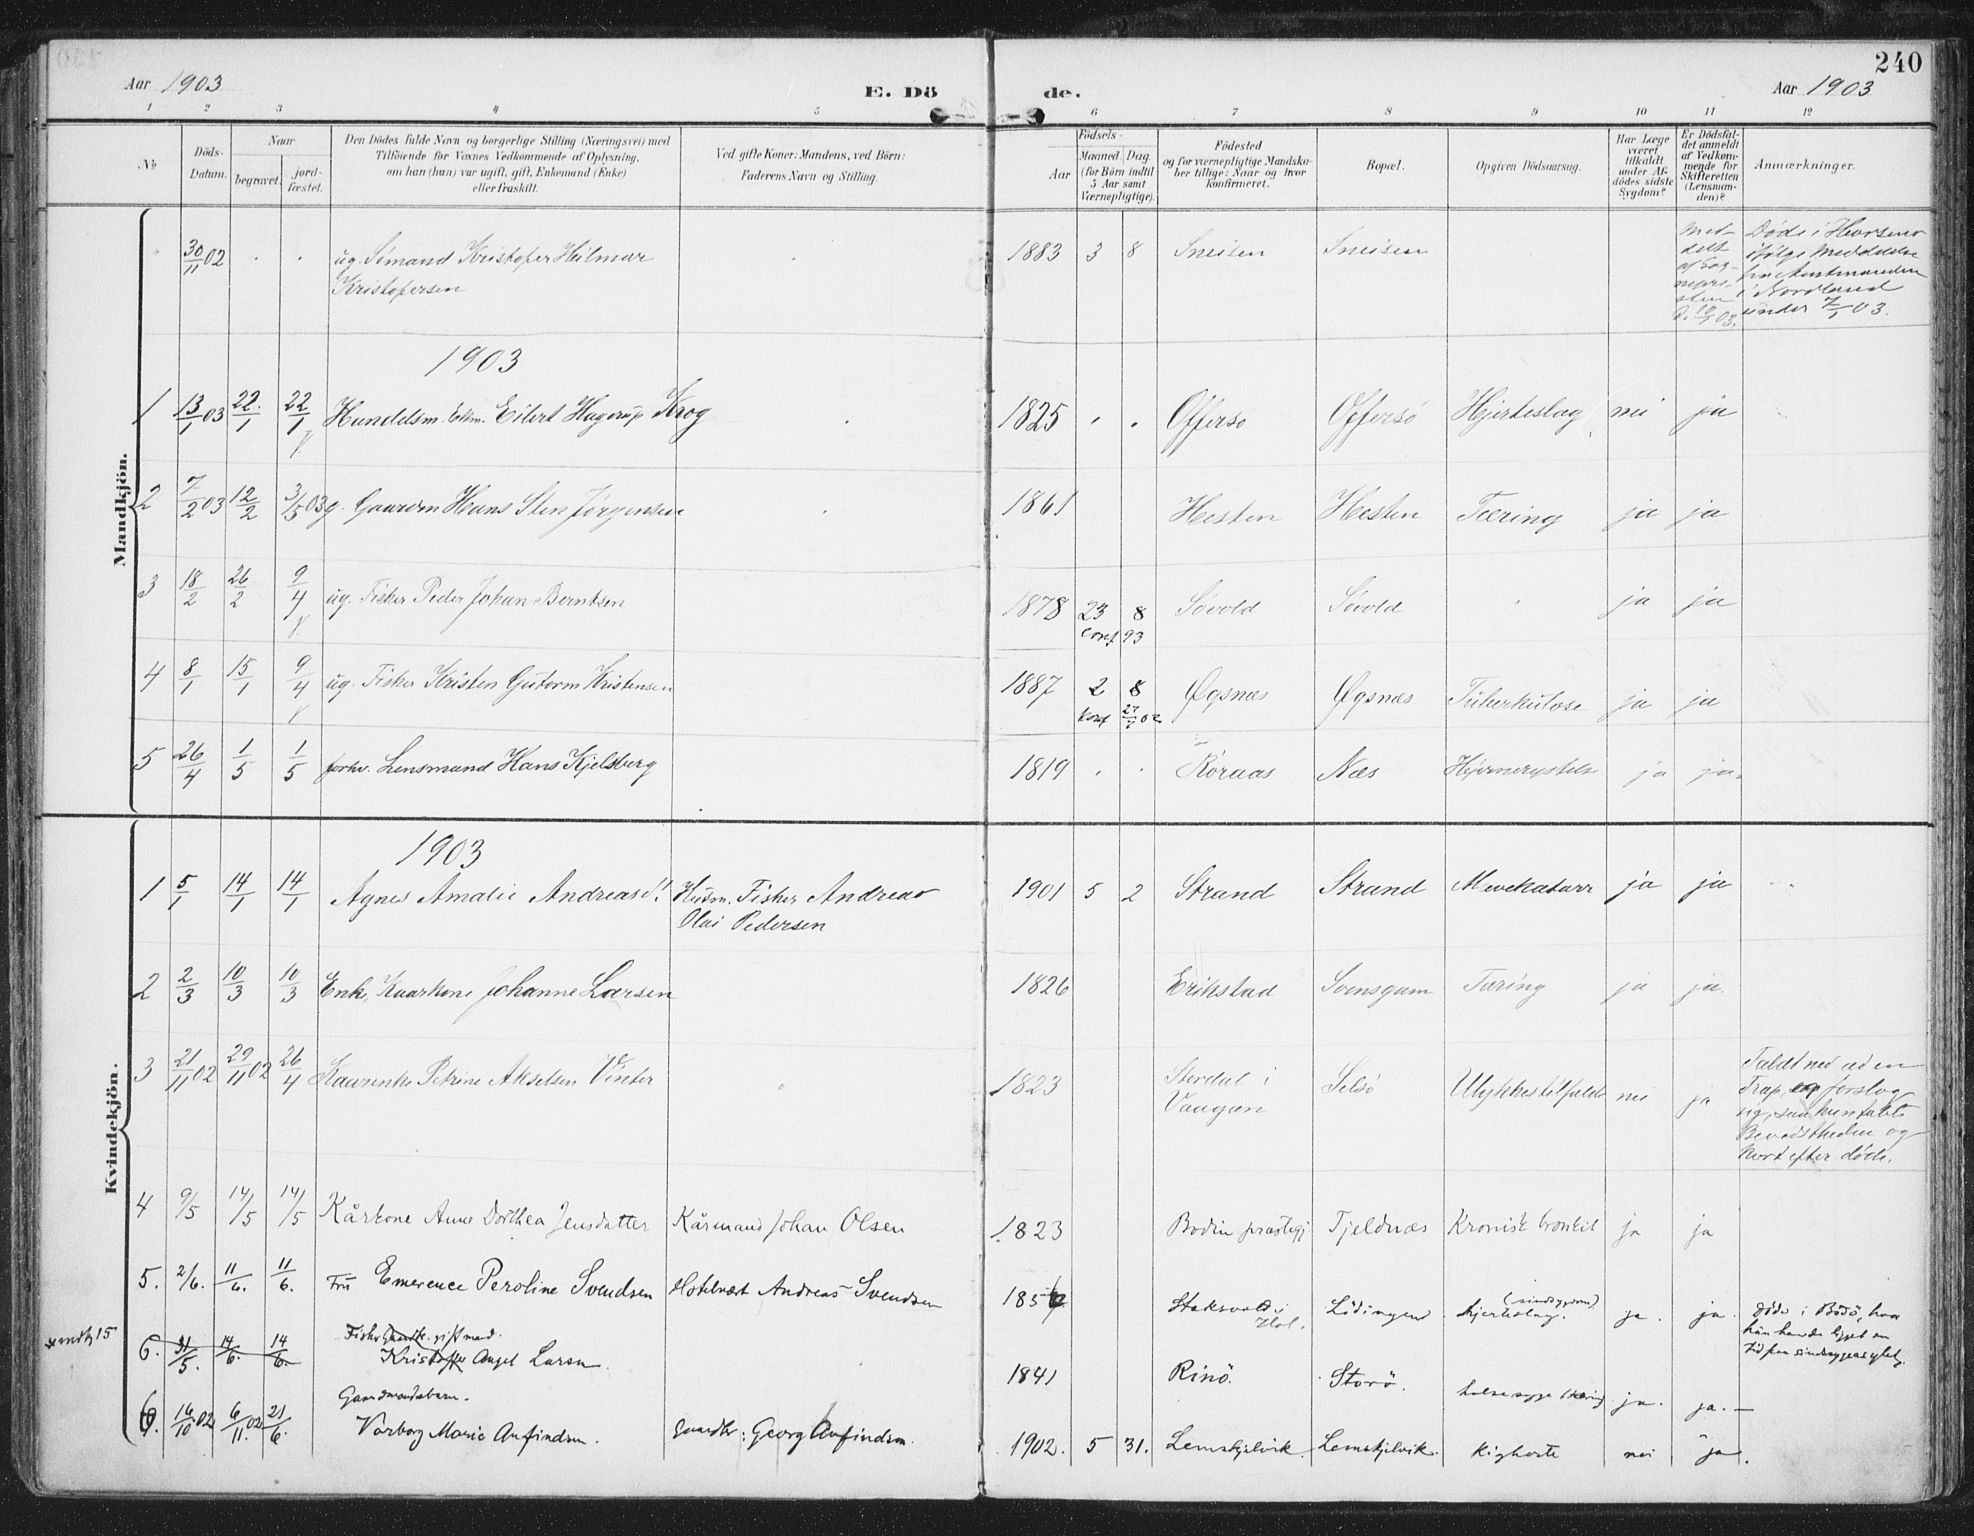 240
Aar 1903
E. Dö
de.
Aar 1903
1 2 3 4 5 6 7 8 9 10 11 12
No
Döds-Datum.
Naar
begravet.
jord-fæstet.
Den Dödes fulde Navn og borgerlige Stilling (Næringsvei) med
Tilföiende for Voxnes Vedkommende af Oplysning,
om han (hun) var ugift, gift, Enkemand (Enke)
eller fraskilt.
Ved gifte Koner: Mandens, ved Börn:
Faderens Navn og Stilling.
Födsels-
Aar
Maaned. Dag.
(for Börn indtil
5 Aar samt
Værnepligtige).
Födested
og for værnepligtige Mandska-
ber tillige: Naar og hvor
konfirmeret.
Bopæl.
Opgiven Dödsaarsag.
Har Læge
været
tilkaldt
under Af-
dödes sidste
Sygdom?
Er Dödsfal-
det anmeldt
af Vedkom-
mende for
Skifteretten
(Lensman-
den)?
Anmærkninger.
Mandkjön.
30/11 02 ug. Sömand Kristofer Hilmar
Kristofersen
1883 3 8 Sneisen Sneisen
Døde i
ifølge Meddelelse
fra Amtmanden
i Nordland
under 7/1 03.
1903
1 13/1 03 22/1 22/1 Eilert Hagerup Krog 1825 Offersø Offersø Hjerteslag nei ja
2 7/2 03 12/2 3/5 03 g. Gaardm Hans Sten Jørgensen 1861 Hesten Hesten Tæring ja ja
3 18/2 26/2 9/4 ug. Fisker Peder Johan Berntsen 1878 23 8 Søvold Søvold ja ja
conf 93
4 8/1 15/1 9/4 ug. Fisker Kristen Gutorm Kristensen 1887 2 8 Øgsnæs Øgsnæs Tuberkulose ja ja
konf
5 26/4 1/5 1/5 forhv. Lensmand Hans Kjelsberg 1819 Röraas Næs Hjernerystelse ja ja.
Kvindekjön.
1903
1 5/1 14/1 14/1 Agnes Amalie Andreasd. Husm. Fisker Andreas
Olai Pedersen
1901 5 2 Strand Strand Mavekatarr ja ja
2 2/3 10/3 10/3 Enk, Kaarkone Johanne Larsen 1826 Erikstad Svensgam Tæring ja ja.
3 21/11 02 29/11 02 26/4 Petrine Akselsen Vinter 1823 Stordal i
Vaagan
Selsö Ulykkestilfælde nei ja
Faldt ned ad en
Trap, og forslog
sig, saa hun tabte
Bevidstheden og
kort efter døde.
4 9/5 14/5 14/5 Kårkone Anne Dorthea Jensdatter Kårmand Johan Olsen 1823 Bodin præstegj Tjeldnæs Kronisk bronkit ja ja
5. 2/6. 11/6. 11/6. Fru Emerence Peroline Svendsen Hotelvært Andreas Svendsen Stoksvold i
Hol.
Lödingen (sindssygdom)
hjerteslag. ja. ja.
døde i Bodö, hvor
hun havde ligget en
tid paa sindssygeasylet.
6. 31/5. 14/6. 14/6. Fisker gift mand.
Kristoffer Angel Larsn. 1841 Rinö. Storö. halssyge (tæring ja. ja.
6. 16/10 02 6/11 02 21/6. Gaardmandsbarn.
Valborg Marie Anfindsen. Gaardbr: Georg Anfindsen. 1902. 5 31. Lemskjelvik. Lemskjelvik. Kighoste nei ja.